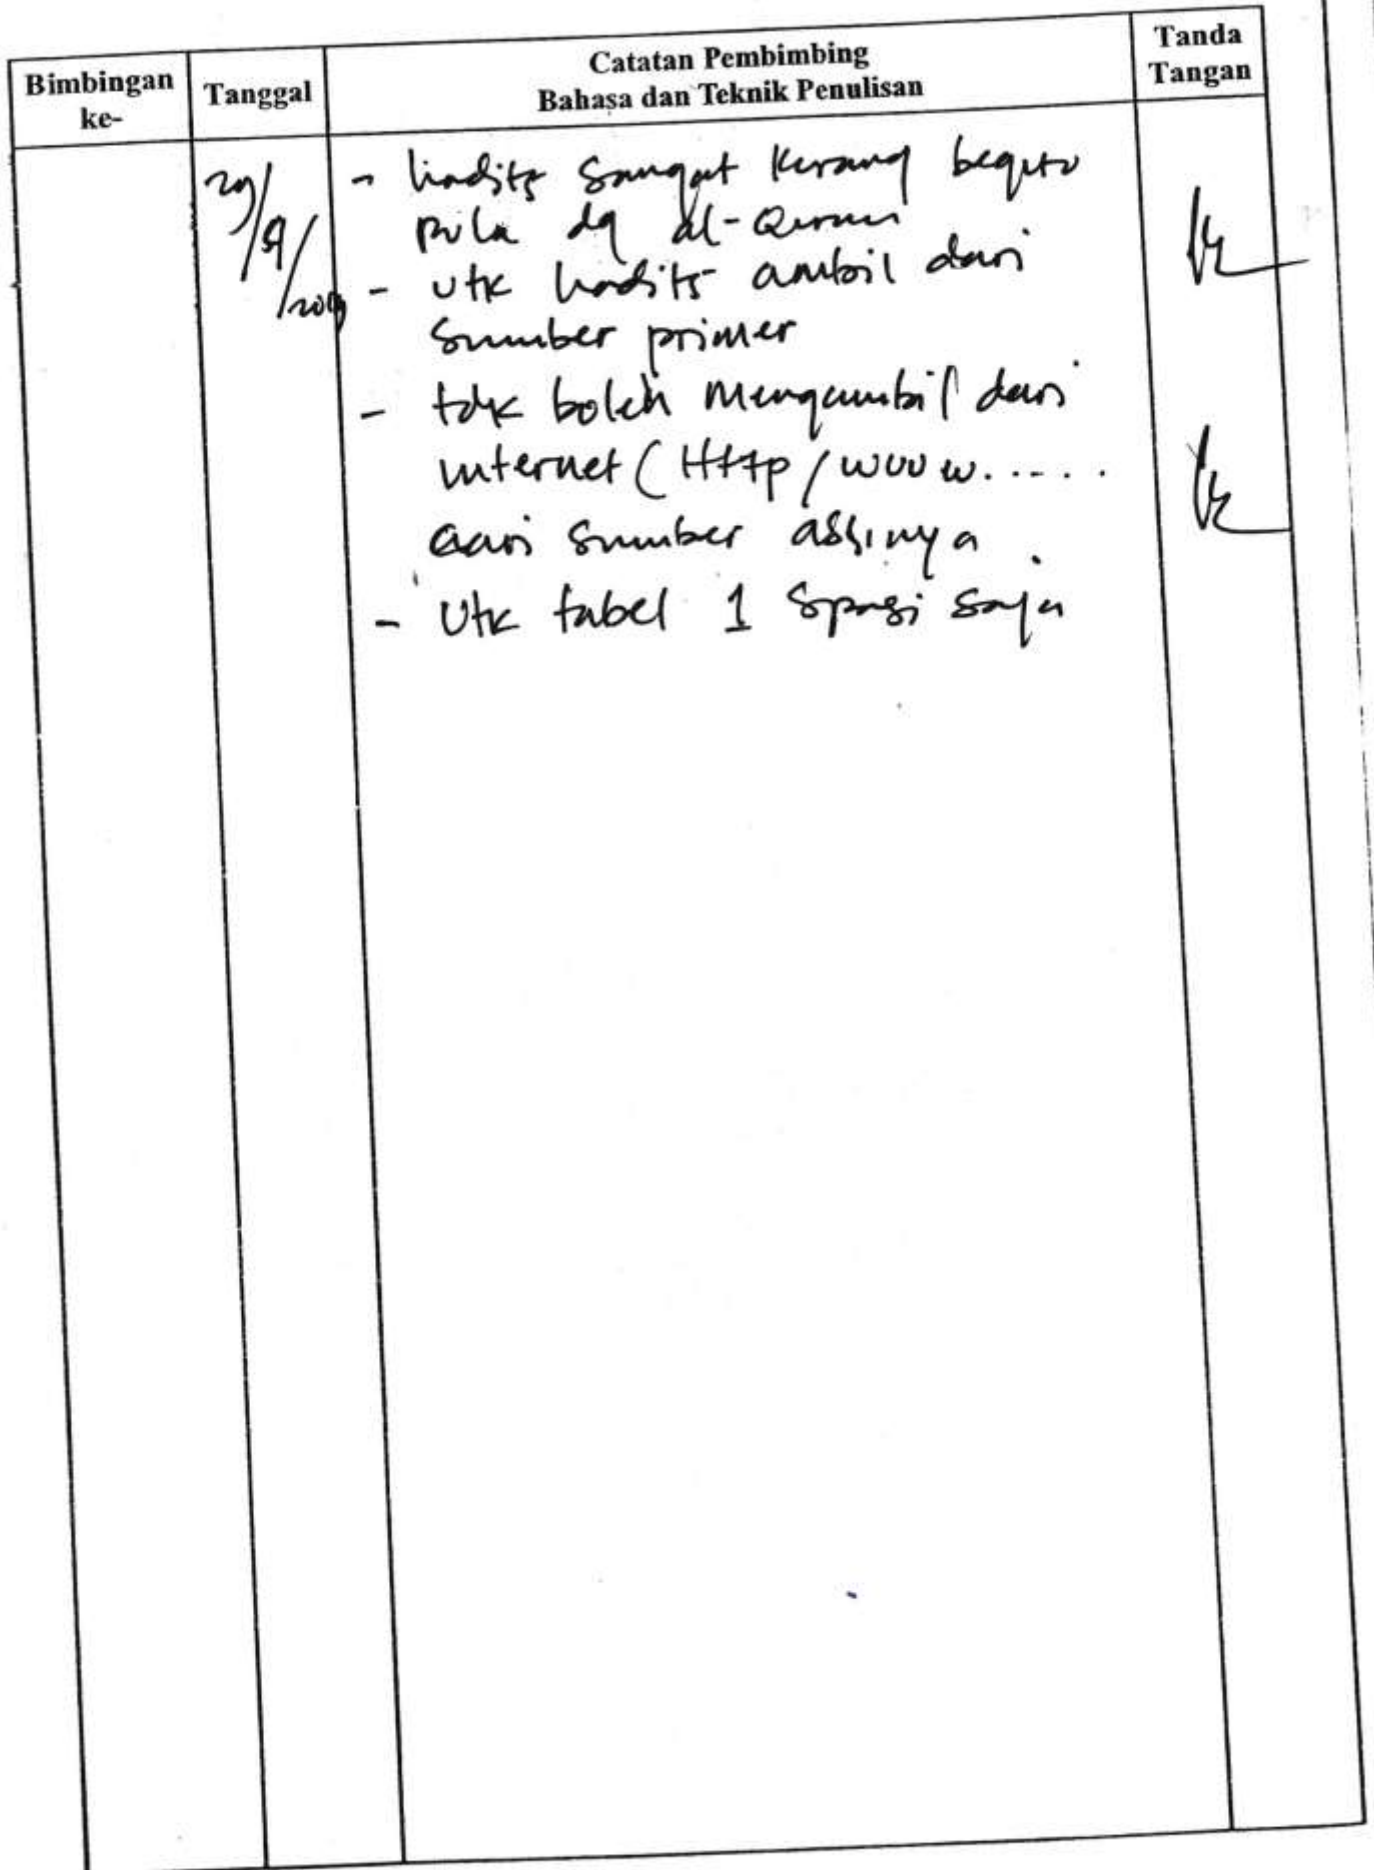 Bimbingan ke-
Tanggal
Catatan Pembimbing
Bahasa dan Teknik Penulisan
Tanda Tangan
29/9/2009
- hadits sangat kurang begitu
pula dg al-Quran
- utk hadits ambil dari
sumber primer
- tdk boleh mengambil dari
internet ( Http / www. ....
cari sumber aslinya .
- Utk tabel 1 spasi saja